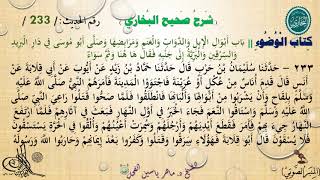 شرح صحيح البخاري
رقم الحديث: / 233 /
كتاب الوضوء || باب أبوال الإبل والدواب والغنم ومرابضها وصلى أبو موسى في دار البريد
والسرقين والبرية إلى جنبه فقال ها هنا وثم سواء
٢٣٣ - حدثنا سليمان بن حرب قال حدثنا حماد بن زيد عن أيوب عن أبي قلابة عن
أنس قال قدم أناس من عكل أو عرينة فاجتووا المدينة فأمرهم النبي صلى الله عليه
وسلم بلقاح وأن يشربوا من أبوالها وألبانها فانطلقوا فلما صحوا قتلوا راعي النبي صلى
الله عليه وسلم واستاقوا النعم فجاء الخبر في أول النهار فبعث في آثارهم فلما ارتفع
النهار جيء بهم فأمر فقطع أيديهم وأرجلهم وسمرت أعينهم وألقوا في الحرة يستسقون
فلا يسقون قال أبو قلابة فهؤلاء سرقوا وقتلوا وكفروا بعد إيمانهم وحاربوا الله ورسوله
د. ماهر ياسين الفحل